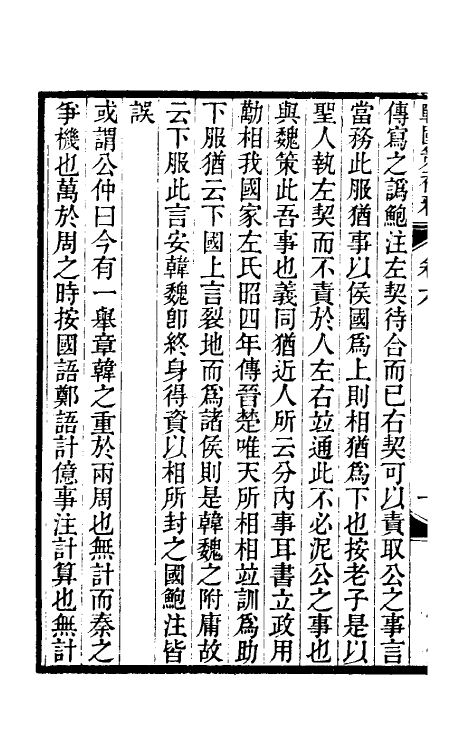 傳寫之譌鮑注左契待合而已右契可以責取公之事言
當務此服猶事以侯國爲上則相猶爲下也按老子是以
聖人執左契而不責於人左右竝通此不必泥公之事也
與魏策此吾事也義同猶近人所云分內事耳書立政用
勱相我國家左氏昭四年傳晉楚唯天所相相竝訓爲助
下服猶云下國上言裂地而爲諸侯則是韓魏之附庸故
云下服此言安韓魏卽終身得資以相所封之國鮑注皆
誤
或謂公仲曰今有一舉章韓之重於兩周也無計而秦之
爭機也萬於周之時按國語鄭語計億事注計算也無計